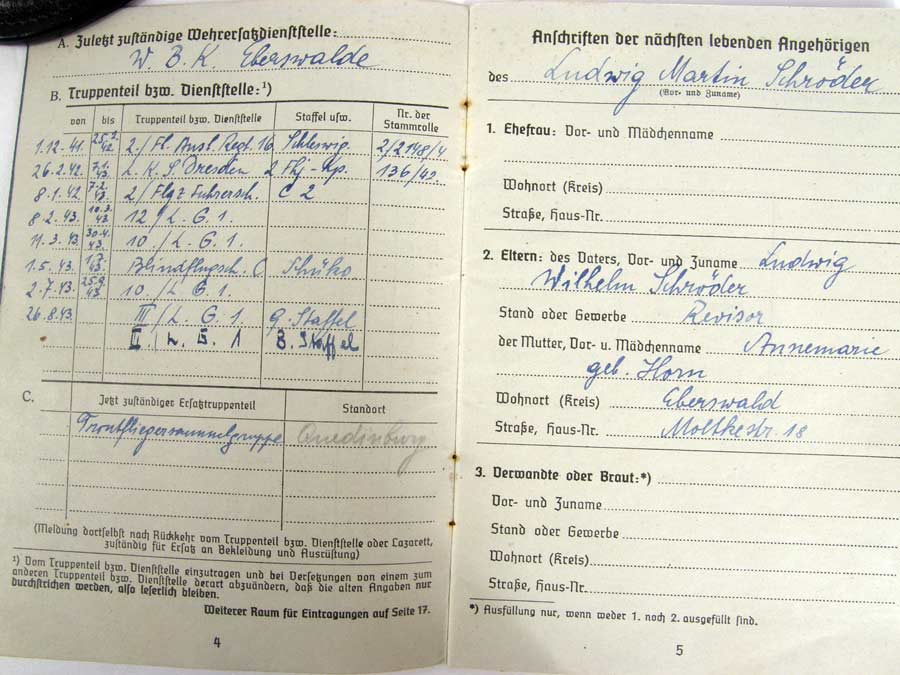 A. Zuletzt zuständige Wehrersatzdienststelle:
W. B. K. Eberswalde
B. Truppenteil bzw. Dienststelle:¹)
von bis Truppenteil bzw. Dienststelle Staffel usw. Nr. der Stammrolle
1.12.41. 25.2.42 2./Fl. Ausb. Regt. 16 Schleswig. 2/2148/4
26.2.42. 7.1.43. L. K. S. Dresden 2 Fhj-Kp. 136/42
8.1.42 7.2.43. 2/Flgz Führersch. C 2
8.2.43. 10.3.43 12/L. G. 1.
11.3.43. 30.4.43. 10./L. G. 1.
1.5.43. 1.7.43. Blindflugsch. C
2.7.43. 25.9.43. 10/L. G. 1.
26.8.43. III/L. G. 1 9. Staffel
II./L. G. 1 8. Staffel
C. Jetzt zuständiger Ersatztruppenteil Standort
Frontfliegersammelgruppe Quedinburg
(Meldung dortselbst nach Rückkehr vom Truppenteil bzw. Dienststelle oder Lazarett,
zuständig für Ersatz an Bekleidung und Ausrüstung)
¹) Vom Truppenteil bzw. Dienststelle einzutragen und bei Versetzungen von einem zum
anderen Truppenteil bzw. Dienststelle derart abzuändern, daß die alten Angaben nur
durchstrichen werden, also leserlich bleiben.
Weiterer Raum für Eintragungen auf Seite 17.
4
Anschriften der nächsten lebenden Angehörigen
des Ludwig Martin Schröder
(Vor- und Zuname)
1. Ehefrau: Vor- und Mädchenname
Wohnort (Kreis)
Straße, Haus-Nr.
2. Eltern: des Vaters, Vor- und Zuname Ludwig
Wilhelm Schröder
Stand oder Gewerbe Revisor
der Mutter, Vor- u. Mädchenname Annemarie
geb. Horn
Wohnort (Kreis) Eberswald
Straße, Haus-Nr. Moltkestr. 18
3. Verwandte oder Braut:*)
Vor- und Zuname
Stand oder Gewerbe
Wohnort (Kreis)
Straße, Haus-Nr.
*) Ausfüllung nur, wenn weder 1. noch 2. ausgefüllt sind.
5